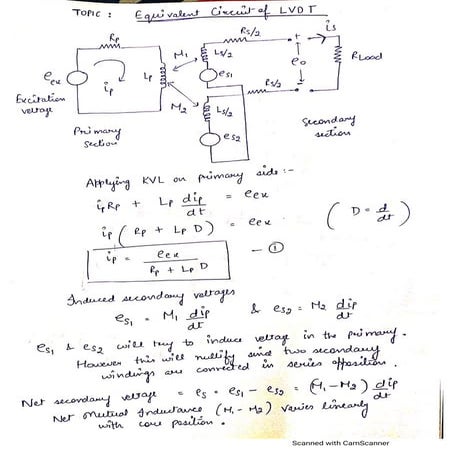 TOPIC : Equivalent Circuit of LVDT
Rp
ip
eex
Excitation voltage
Lp
Primary section
M1
M2
Ls/2
es1
Ls/2
es2
Rs/2
Rs/2
+
eo
-
is
RLoad
Secondary section
Applying KVL on primary side :-
ipRp + Lp dip/dt = eex
ip ( Rp + Lp D ) = eex
( D = d/dt )
ip = eex / Rp + Lp D — ①
Induced secondary voltages
es1 = M1 dip/dt & es2 = M2 dip/dt
es1 & es2 will try to induce voltage in the primary.
However this will nullify since two secondary
windings are connected in series opposition.
Net secondary voltage = es = es1 - es2 = (M1 - M2) dip/dt
Net Mutual Inductance (M1 - M2) varies linearly
with core position.
Scanned with CamScanner